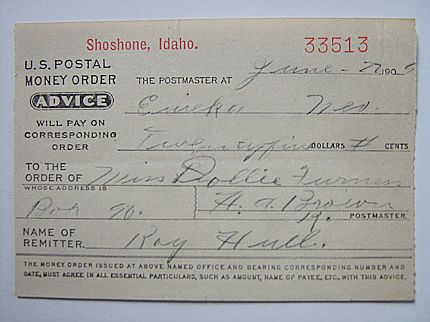 Shoshone, Idaho. 33513
U.S. POSTAL
MONEY ORDER
ADVICE
THE POSTMASTER AT June 190
Eureka Nev.
WILL PAY ON
CORRESPONDING
ORDER
Twentyfive DOLLARS CENTS
TO THE
ORDER OF Miss Dollie
WHOSE ADDRESS IS
Box H. T. Brown
POSTMASTER.
NAME OF
REMITTER. Roy Hull.
THE MONEY ORDER ISSUED AT ABOVE NAMED OFFICE AND BEARING CORRESPONDING NUMBER AND
DATE, MUST AGREE IN ALL ESSENTIAL PARTICULARS, SUCH AS AMOUNT, NAME OF PAYEE, ETC., WITH THIS ADVICE.